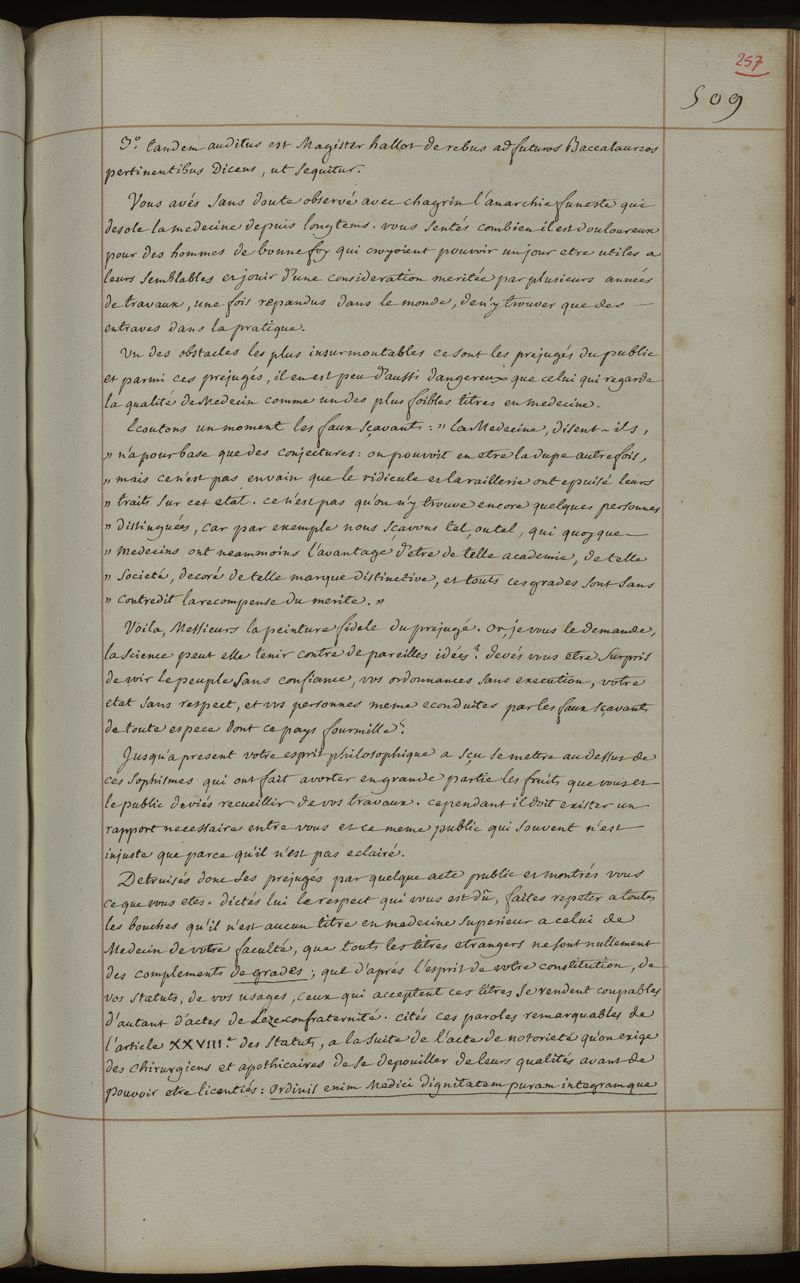 257
509
3.° tandem auditus est Magister hallot de rebus ad futuros Baccalaureos
pertinentibus Dicens, ut sequitur.
Vous avés sans doute observé avec chagrin l'anarchie funeste qui
desole la medecine depuis longtems. vous sentés combien il est douloureux
pour des hommes de bonne foy qui croyoient pouvoir un jour etre utiles a
leurs semblables et jouir d'une consideration meritée par plusieurs années
de travaux, une fois repandus dans le monde, de n'y trouver que des —
entraves dans la pratique.
Un des obstacles les plus insurmontables ce sont les prejugés du public
et parmi ces prejugés, il en est peu d'aussi dangereux que celui qui regarde
la qualité de Medecin comme un des plus foibles titres en medecine.
Ecoutons un moment les faux sçavants : " La Medecine, disent-ils,
" n'a pour base que des conjectures : on pouvoit en etre la dupe autre fois,
" mais ce n'est pas envain que le ridicule et la raillerie ont epuisé leurs
" traits sur cet etat. ce n'est pas qu'on n'y trouve encore quelques personnes
" distinguées, car par exemple nous sçavons tel, ou tel, qui quoyque —
" medecins ont neammoins l'avantage d'etre de telle academie, de telle
" societé, decoré de telle marque distinctive, et touts ces grades sont sans
" contredit la recompense du merite. "
Voila, Messieurs la peinture fidele du prejugé. or, je vous le demande,
la science peut elle tenir contre de pareilles idées? devés vous etre surpris
de voir le peuple sans confiance, vos ordonnances sans execution, votre
etat sans respect, et vos personnes meme econduites par les faux sçavants
de toute espece dont ce pays fourmille?
Jusqu'a present votre esprit philosophique a sçu se mettre au dessus de
ces sophismes qui ont fait avorter en grande partie les fruits que vous et
le public deviés recueillir de vos travaux. cependant il doit exister un
rapport necessaire entre vous et ce meme public qui souvent n'est
injuste que parce qu'il n'est pas eclairé.
Detruisés donc ses prejugés par quelque acte public et montrés vous
ce que vous etes. dictés lui le respect qui vous est dû, faites repeter a toutes
les bouches qu'il n'est aucun titre en medecine superieur a celui de
Medecin de vôtre faculté, que touts les titres etrangers ne sont nullement
des complements de grades ; que d'aprés l'esprit de votre constitution, de
vos statuts, de vos usages, ceux qui acceptent ces titres se rendent coupables
d'autant d'actes de Leze-confraternité. cités ces paroles remarquables de
l'article XXVIII.e des statuts, a la suite de l'acte de notorieté qu'on exige
des chirurgiens et apothicaires de se depouiller de leurs qualités avant de
pouvoir etre licentiés : Ordinis enim Medici dignitatem puram integramque